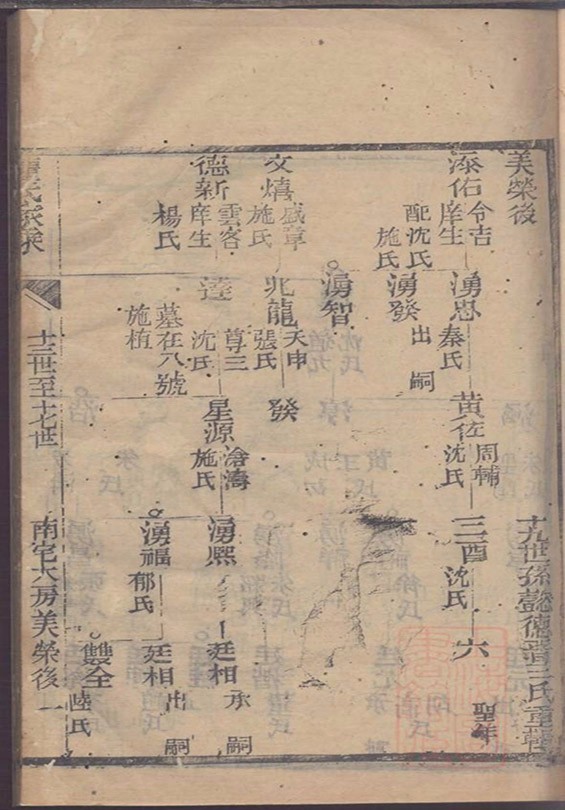 美榮後
十九世孫懿德
佑 令吉 庠生
配沈氏 施氏
湧忠 秦氏
黃佐 周輔 沈氏
三酉 沈氏
六 聖年
湧發 出嗣
湧智
文熺 盛章 施氏
兆龍 天申 張氏
發
德新 雲客 庠生 楊氏
達 尊三 沈氏
墓在八號
施梄
星源 滄濤 施氏
湧熙
廷相 承嗣
湧福 郁氏
廷相 出嗣
雙全 陸氏
十三世至十七世
南宅大房美榮後 一